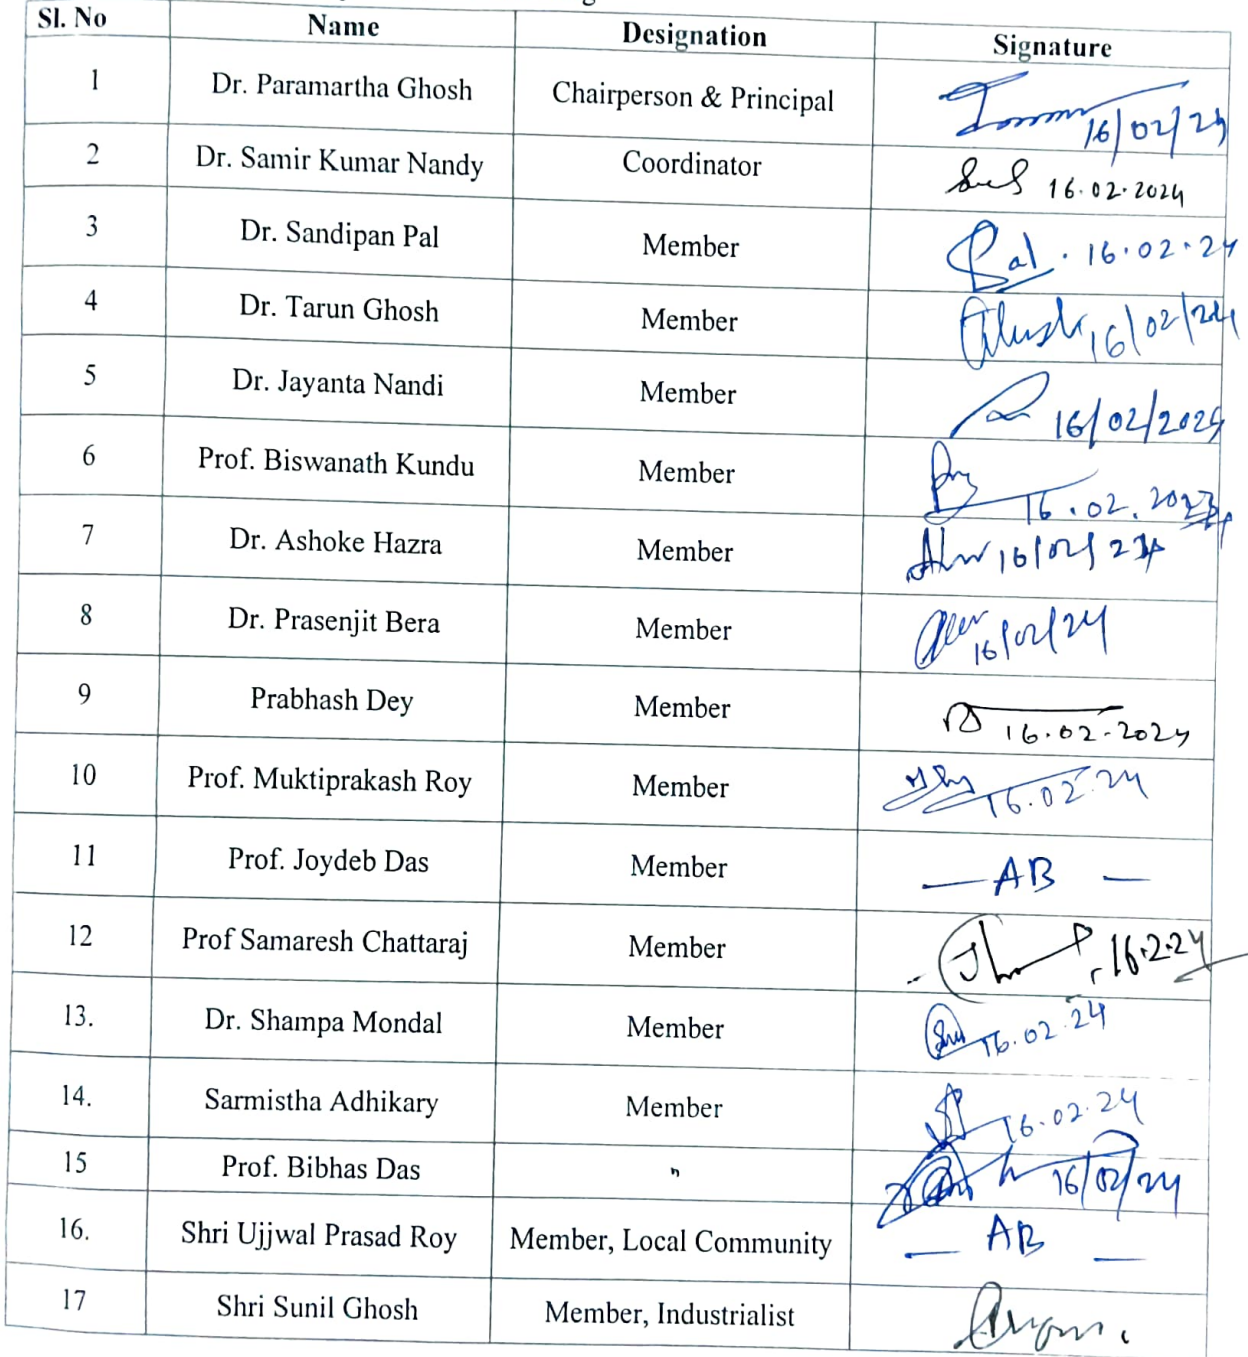 Sl. No Name Designation Signature
1 Dr. Paramartha Ghosh Chairperson & Principal 16/02/24
2 Dr. Samir Kumar Nandy Coordinator 16.02.2024
3 Dr. Sandipan Pal Member Pal . 16.02.24
4 Dr. Tarun Ghosh Member 16/02/24
5 Dr. Jayanta Nandi Member 16/02/2024
6 Prof. Biswanath Kundu Member 16.02.2024
7 Dr. Ashoke Hazra Member 16/02/24
8 Dr. Prasenjit Bera Member 16/02/24
9 Prabhash Dey Member 16.02.2024
10 Prof. Muktiprakash Roy Member 16.02.24
11 Prof. Joydeb Das Member — AB —
12 Prof Samaresh Chattaraj Member 16.2.24
13. Dr. Shampa Mondal Member 16.02.24
14. Sarmistha Adhikary Member 16.02.24
15 Prof. Bibhas Das " 16/02/24
16. Shri Ujjwal Prasad Roy Member, Local Community — AB —
17 Shri Sunil Ghosh Member, Industrialist